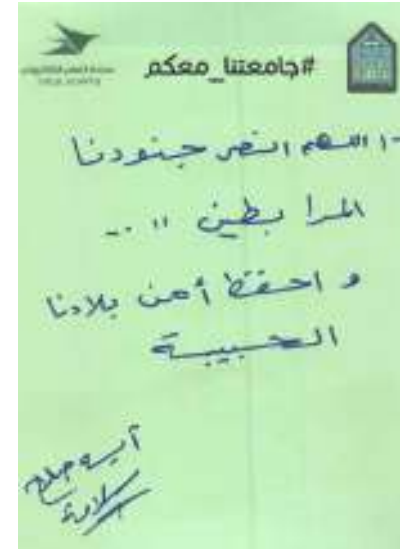 #جامعتنا_معكم
-١ اللهم انصر جنودنا
المرابطين ،، ..
و احفظ أمن بلادنا
الحبيبة